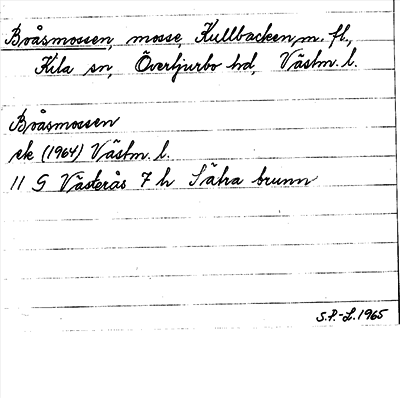 Broåsmossen, mosse, Kullbacken, m. fl.,
Kila sn, Övertjurbo hd, Västm. l.
Broåsmossen
ek (1964) Västm. l.
11 G Västerås 7 h Sätra brunn
S.P.-L. 1965